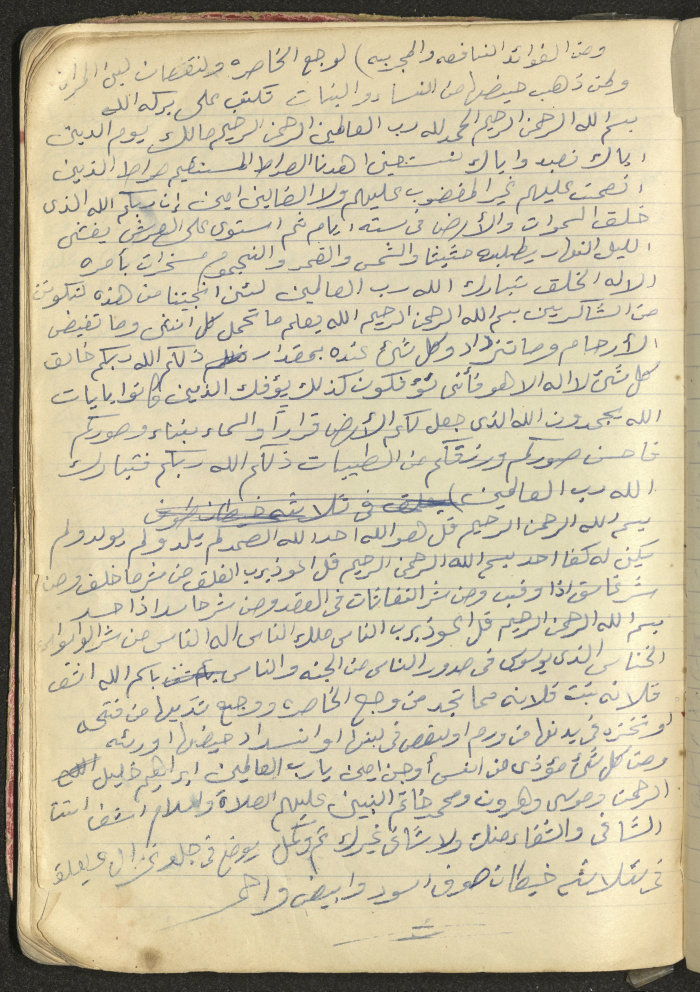 ومن الفوائد النافعه والمجربه) لوجع الخاصره ولنقصان لبن المرأه
ولمن ذهب حيضها من النساء والبنات تكتب على بركه الله
بسم الله الرحمن الرحيم الحمد لله رب العالمين الرحمن الرحيم مالك يوم الدين
اياك نعبد واياك نستعين اهدنا الصراط المستقيم صراط الذين
انعمت عليهم غير المغضوب عليهم ولا الضالين امين إن ربكم الله الذى
خلق السموات والأرض فى سته ايام ثم استوى على العرش يغشى
الليل النهار يطلبه حثيثا والشمس والقمر والنجوم مسخرات بأمره
الا له الخلق تبارك الله رب العالمين لئن انجتنا من هذه لنكونن
من الشاكرين بسم الله الرحمن الرحيم الله يعلم ما تحمل كل انثى وما تغيض
الأرحام وما تزداد وكل شئ عنده بمقدار ذلكم الله ربكم خالق
كل شئ لا اله الا هو فأنى تؤفكون كذلك يؤفك الذين كانوا بايات
الله يجحدون الله الذى جعل لكم الأرض قراراً والسماء بناء وصوركم
فاحسن صوركم ورزقكم من الطيبات ذلكم الله ربكم فتبارك
الله رب العالمين) يعلق فى ثلاثه خيطان صوف
بسم الله الرحمن الرحيم قل هو الله احد الله الصمد لم يلد ولم يولد ولم
يكن له كفا احد بسم الله الرحمن الرحيم قل اعوذ برب الفلق من شر ما خلق ومن
شر غاسق اذا وقب ومن شر النفاثات فى العقد ومن شر حاسد اذا حسد
بسم الله الرحمن الرحيم قل اعوذ برب الناس ملك الناس اله الناس من شر الوسواس
الخناس الذى يوسوس فى صدور الناس من الجنه والناس باسم الله اشف
فلانه بنت فلانه مما تجد من وجع الخاصره ووجع ثدييها من فتحه
او نخزه فى بدنها من ورم او نقص فى لبنها او انسداد حيضها او ريئه
ومن كل شئ مؤذى من انس أو جن امين يارب العالمين ابراهيم خليل
الرحمن وموسى وهرون ومحمد خاتم النبين عليهم الصلاة والسلام اشف انت
الشافى والشفاء منك ولا شافى غيرك تم وكمل يوضع فى جلد غزال ويعلق
فى ثلاثه خيطان صوف اسود وابيض واحمر